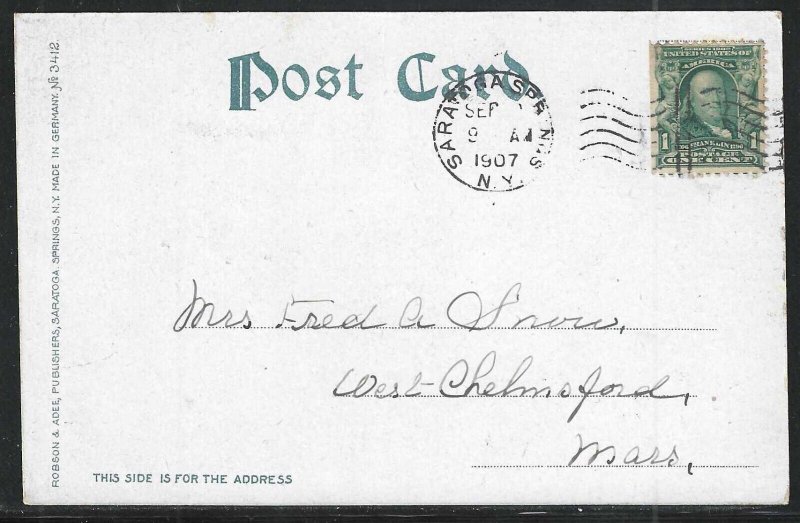 Post Card
SARATOGA SPRINGS
SEP
9 AM
1907
N.Y.
SERIES 1902
UNITED STATES OF
AMERICA
1 1
FRANKLIN
POSTAGE
ONE CENT
Mrs Fred A Snow,
West Chelmsford,
Mass,
THIS SIDE IS FOR THE ADDRESS
ROBSON & ADEE, PUBLISHERS, SARATOGA SPRINGS, N.Y. MADE IN GERMANY. No 3412.